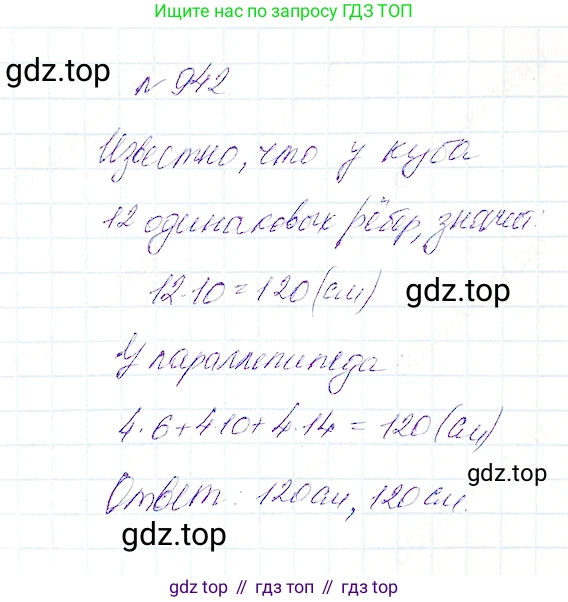 Ищите нас по запросу ГДЗ ТОП
gdz.top
№ 942
Известно, что у куба
12 одинаковых рёбер, значит:
12·10=120(см)
gdz.top
У параллепипеда:
4·6+4·10+4·14=120(см)
gdz.top
Ответ: 120см, 120см.
gdz.top
gdz top // гдз топ // гдз top